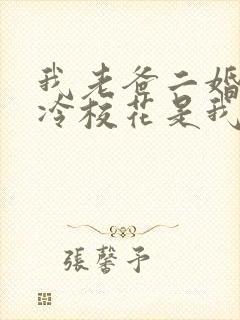 我老爸二婚
冷校花是我
张馨予